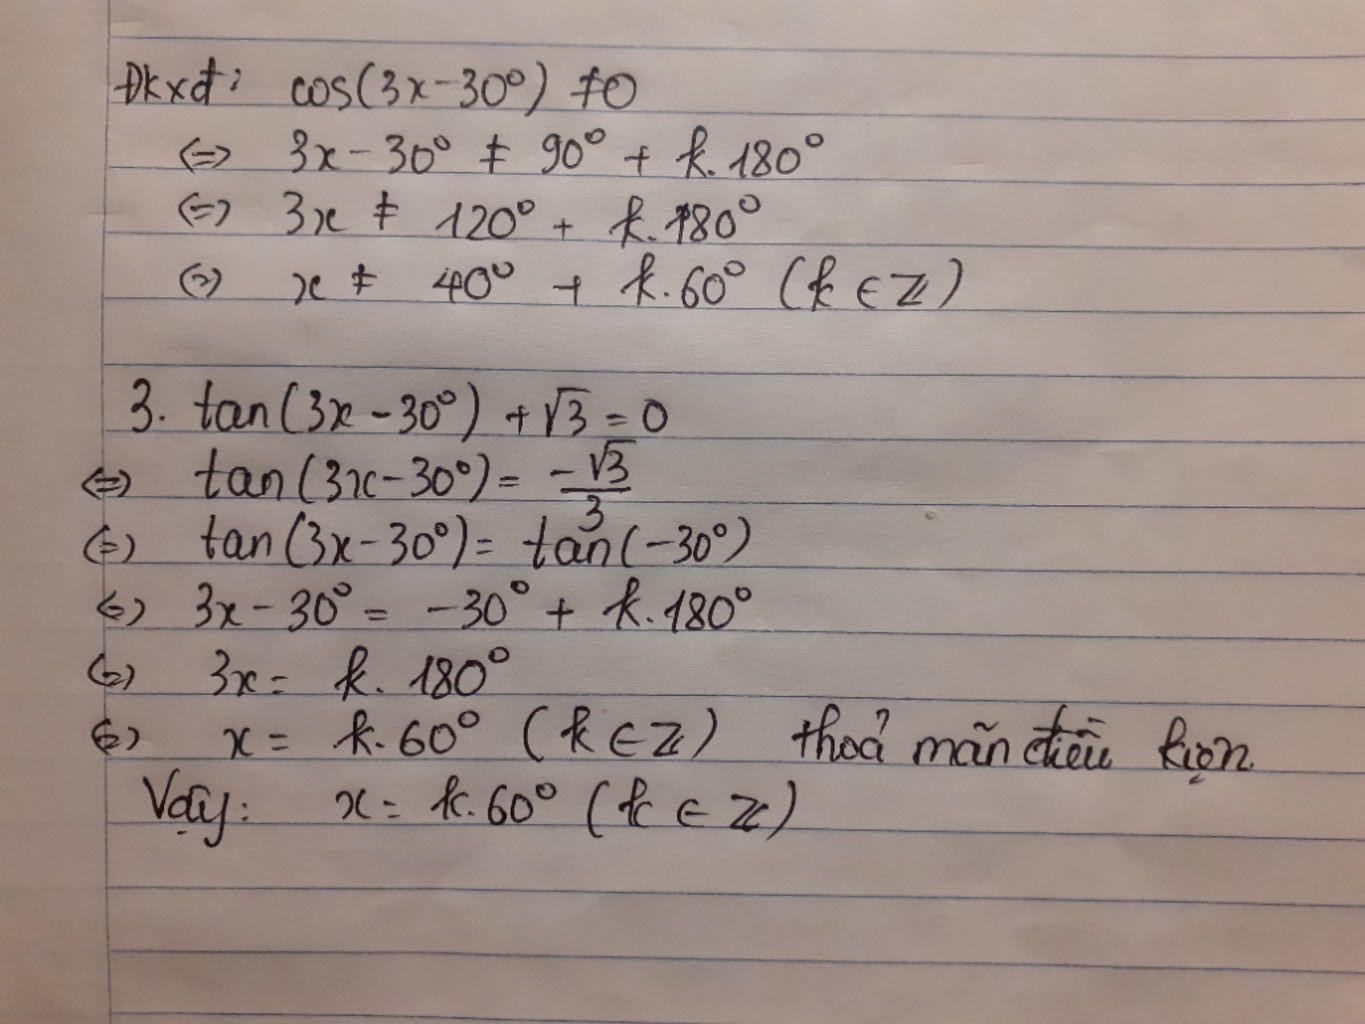 Đkxđ: cos(3x-30°) ≠0
⇔ 3x - 30° ≠ 90° + k.180°
⇔ 3x ≠ 120° + k.180°
⇔ x ≠ 40° + k.60° (k ∈ ℤ)
3. tan(3x - 30°) + √3 = 0
⇔ tan(3x-30°) = -√3/3
⇔ tan(3x-30°) = tan(-30°)
⇔ 3x - 30° = -30° + k.180°
⇔ 3x = k. 180°
⇔ x = k.60° (k ∈ ℤ) thoả mãn điều kiện.
Vậy: x = k.60° (k ∈ ℤ)